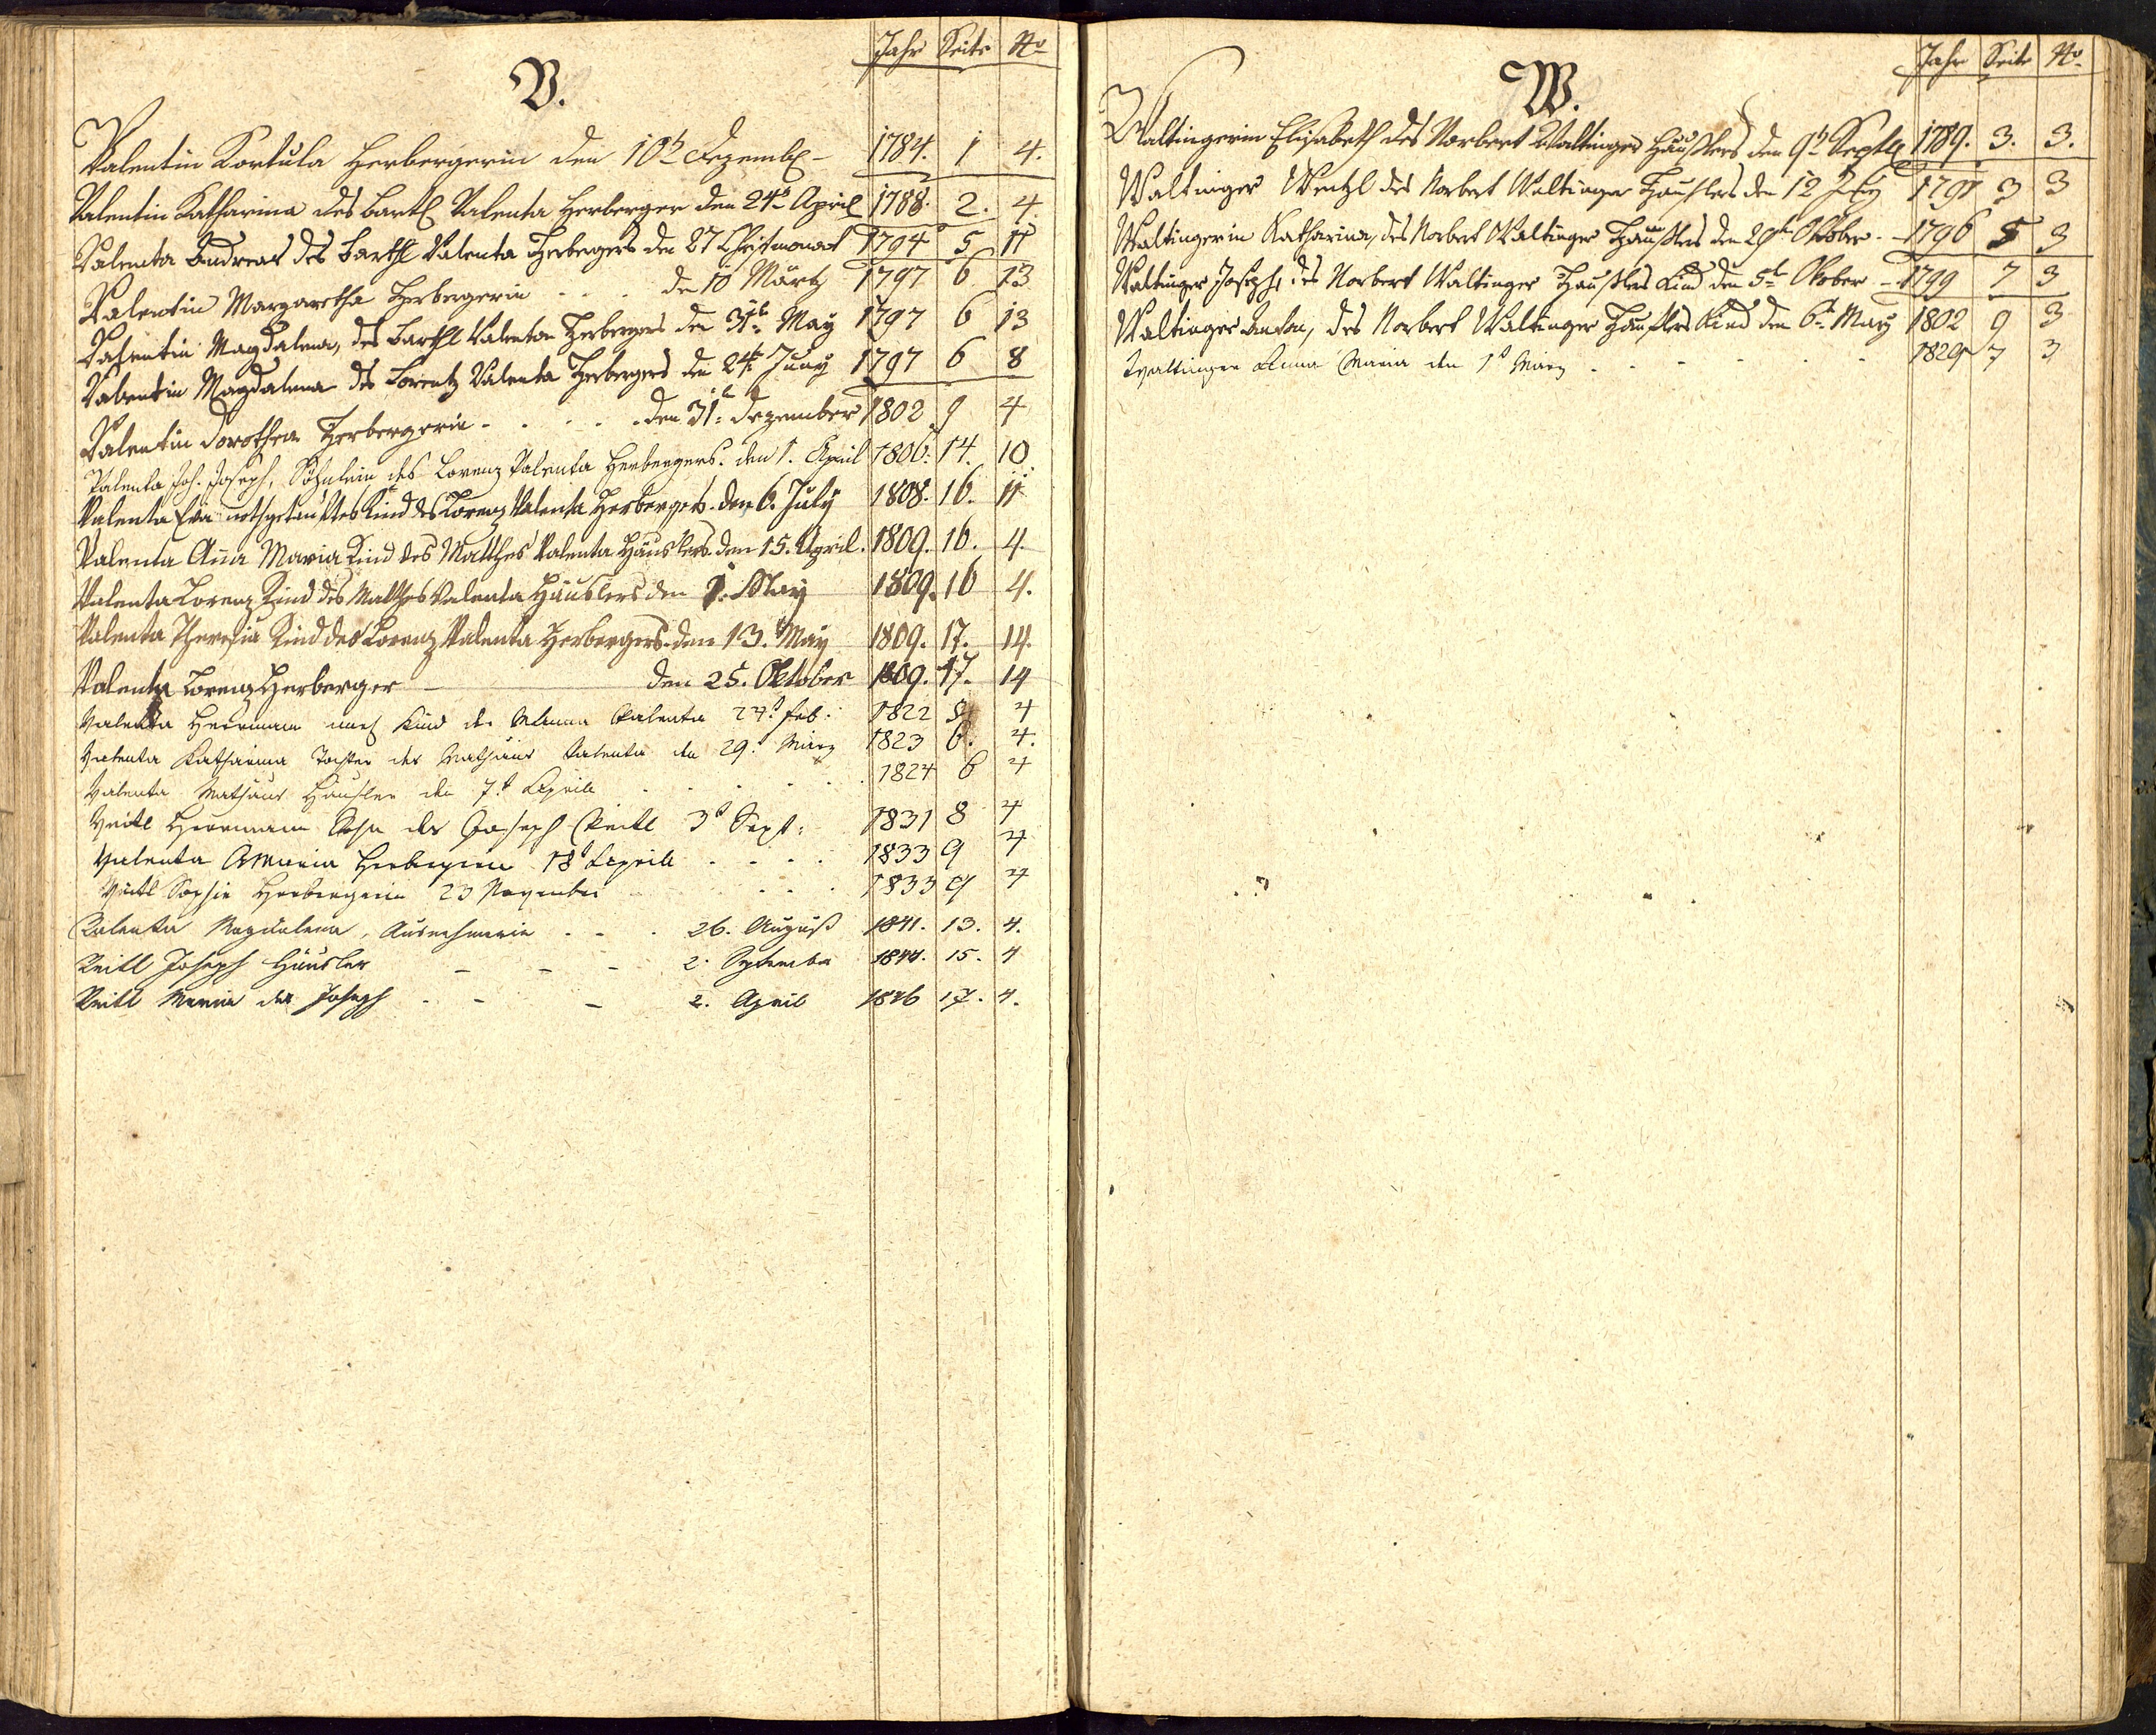 V.
Jahr Seite No
Valentin Kortula Herbergerin den 10t Dezemb. - 1784. 1 4.
Valentin Katharina des Bartl Valenta Herberger den 24t April 1788. 2. 4.
Valenta Andreas des Barthl Valenta Herbergers den 27 Christmonat 1794 5 11
Valentin Margaretha Herbergerin . . . den 10 Märtz 1797 6 13
Valentin Magdalena, des Barthl Valenta Herbergers den 31t May 1797 6 13
Valentin Magdalena des Lorentz Valenta Herbergers den 24t Juny 1797 6 8
Valentin Dorothea Herbergerin . . . . . den 31t Dezember 1802 9 4
Valenta Joh. Joseph, Söhnlein des Lorenz Valenta Herbergers. den 1. April 1806. 14. 10
Valenta Eva nothgetauftes Kind des Lorenz Valenta Herbergers. den 6. July 1808. 16. 11
Valenta Ana Maria Kind des Matthes Valenta Häuslers. den 15. April. 1809. 16. 4.
Valenta Lorenz Kind des Matthes Valenta Häuslers den 1. May 1809. 16 4.
Valenta Theresia Kind des Lorenz Valenta Herbergers. den 13. May 1809. 17. 14.
Valenta Lorenz Herberger — den 25. Oktober 1809. 17. 14
Valenta Herrmann Kind der Valenta 27t Feb: 1822 4
Valenta Katharina Tochter des Mathäus Valenta den 29t März 1823 6. 4.
Valenta Mathäus Häusler den 7t Aprill . . . . . 1824 6 4
Veitl Herrmann Sohn des Joseph Veitl 3t Sept: 1831 8 4
Valenta AMaria Herbergerin 18t Aprill . . . . 1833 9 4
Veitl Sophie Herbergerin 23 November . . . . 1833 9 4
Valenta Magdalena, Ausnehmerin . . . 26. August 1841. 13. 4.
Veitl Joseph Häusler - - - 2. September 1844. 15. 4
Veitl Maria des Joseph . - - 2. April 1846 17. 4.
W.
Jahr Seite No
Waltingerin Elisabeth des Norbert Waltinger Häußlers den 9t Septb 1789. 3. 3.
Waltinger Wentzl des Norbert Waltinger Häußlers den 12 July 1791 3 3
Waltingerin Katharina, des Norbert Waltinger Häußlers den 29t Oktober - 1796 5 3
Waltinger Joseph, des Norbert Waltinger Häußlers Kind den 5t Oktober - 1799 7 3
Waltinger Anton, des Norbert Waltinger Häußlers Kind den 6t May 1802 9 3
Waltinger Anna Maria den 1t März . . . . . 1829 7 3